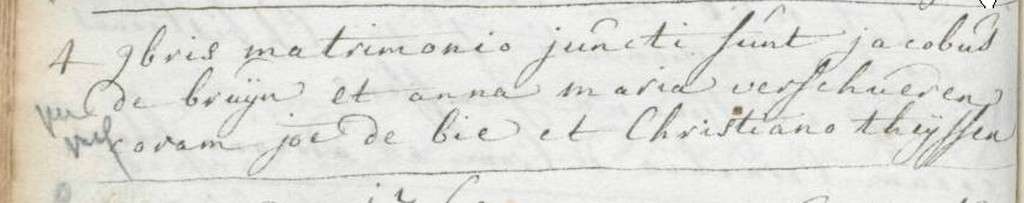 4 9bris matrimonio juncti sunt jacobus
de bruyn et anna maria verschueren
coram joe de bie et Christiano thyssen